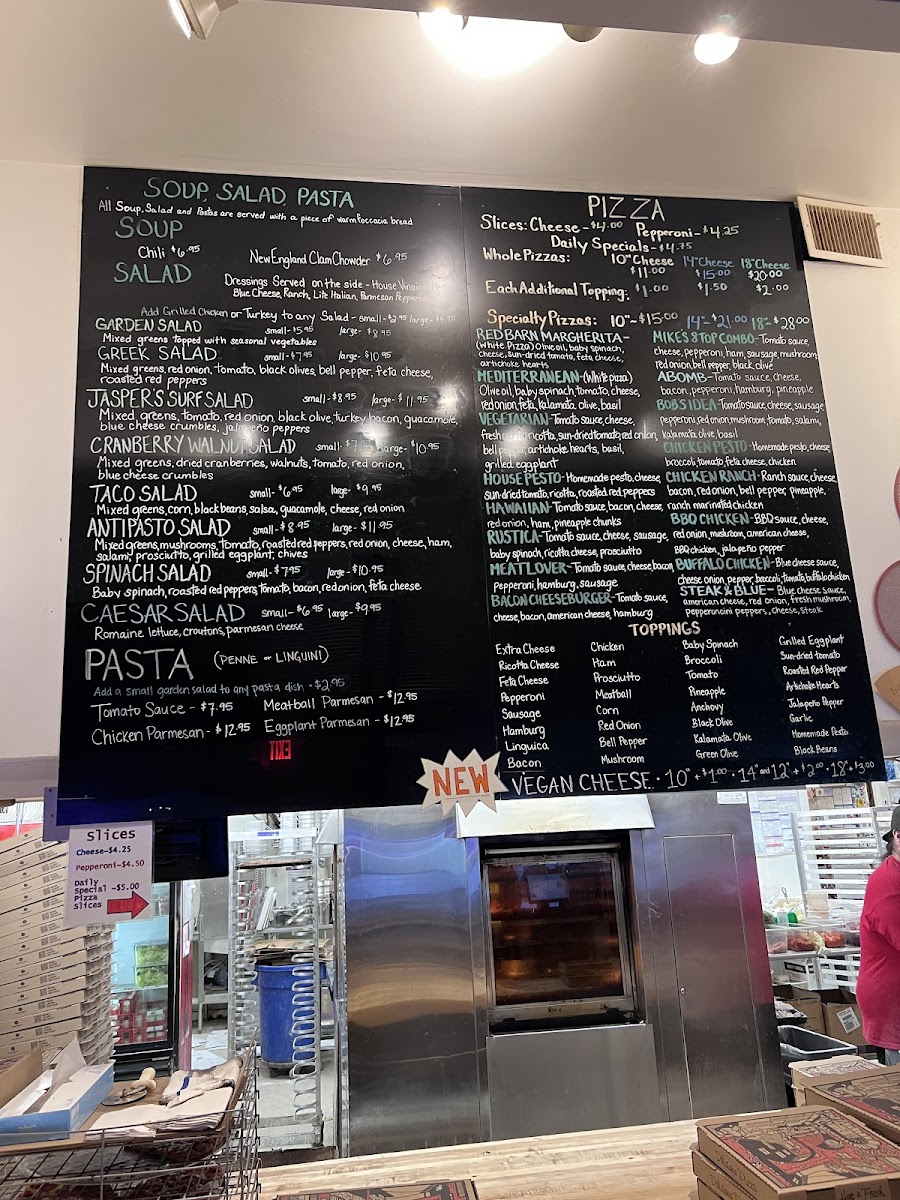 SOUP, SALAD, PASTA
All Soup, Salad and Pastas are served with a piece of warm foccacia bread
SOUP
Chili $6.95
New England Clam Chowder $6.95
SALAD
Dressings Served on the side - House
Blue Cheese, Ranch, Lite Italian, Parmesan
Add Grilled Chicken or Turkey to any Salad - small - $2.95 large -
GARDEN SALAD small - $5.95 large - $8.95
Mixed greens topped with seasonal vegetables
GREEK SALAD small - $7.95 large - $10.95
Mixed greens, red onion, tomato, black olives, bell pepper, feta cheese,
roasted red peppers
JASPER'S SURF SALAD small - $8.95 large - $11.95
Mixed greens, tomato, red onion, black olive, turkey, bacon, guacamole,
blue cheese crumbles, jalapeño peppers
CRANBERRY WALNUT SALAD small - large - $10.95
Mixed greens, dried cranberries, walnuts, tomato, red onion,
blue cheese crumbles
TACO SALAD small - $6.95 large - $9.95
Mixed greens, corn, black beans, salsa, guacamole, cheese, red onion
ANTIPASTO SALAD small - $8.95 large - $11.95
Mixed greens, mushrooms, tomato, roasted red peppers, red onion, cheese, ham,
salami, prosciutto, grilled eggplant, chives
SPINACH SALAD small - $7.95 large - $10.95
Baby spinach, roasted red peppers, tomato, bacon, red onion, feta cheese
CAESAR SALAD small - $6.95 large - $9.95
Romaine lettuce, croutons, parmesan cheese
PASTA (PENNE or LINGUINI)
Add a small garden salad to any pasta dish - $2.95
Tomato Sauce - $7.95 Meatball Parmesan - $12.95
Chicken Parmesan - $12.95 Eggplant Parmesan - $12.95
EXIT
PIZZA
Slices: Cheese - $4.00 Pepperoni - $4.25
Daily Specials - $4.75
Whole Pizzas: 10" Cheese 14" Cheese 18" Cheese
$11.00 $15.00 $20.00
Each Additional Topping: $1.00 $1.50 $2.00
Specialty Pizzas: 10" - $15.00 14" - $21.00 18" - $28.00
RED BARN MARGHERITA -
(White Pizza) Olive oil, baby spinach,
cheese, sun-dried tomato, feta cheese,
artichoke hearts
MEDITERRANEAN - (White pizza)
Olive oil, baby spinach, tomato, cheese,
red onion, feta, kalamata olive, basil
VEGETARIAN - Tomato sauce, cheese,
fresh ricotta, sun-dried tomato, red onion,
bell pepper, artichoke hearts, basil,
grilled eggplant
HOUSE PESTO - Homemade pesto, cheese,
sun-dried tomato, ricotta, roasted red peppers
HAWAIIAN - Tomato sauce, bacon, cheese,
red onion, ham, pineapple chunks
RUSTICA - Tomato sauce, cheese, sausage,
baby spinach, ricotta cheese, prosciutto
MEATLOVER - Tomato sauce, cheese, bacon,
Pepperoni, hamburg, sausage
BACON CHEESEBURGER - Tomato sauce,
cheese, bacon, american cheese, hamburg
MIKE'S 8 TOP COMBO - Tomato sauce,
cheese, pepperoni, ham, sausage, mushroom,
red onion, bell pepper, black olive
A BOMB - Tomato sauce, cheese,
bacon, pepperoni, hamburg, pineapple
BOB'S IDEA - Tomato sauce, cheese, sausage
pepperoni, red onion, mushroom, tomato, salami,
kalamata olive, basil
CHICKEN PESTO - Homemade pesto, cheese,
broccoli, tomato, feta cheese, chicken
CHICKEN RANCH - Ranch sauce, cheese,
bacon, red onion, bell pepper, pineapple,
ranch marinated chicken
BBQ CHICKEN - BBQ sauce, cheese,
red onion, mushroom, american cheese,
BBQ chicken, jalapeño pepper
BUFFALO CHICKEN - Blue cheese sauce,
cheese, onion, pepper, broccoli, tomato, buffalo chicken
STEAK & BLUE - Blue cheese sauce,
american cheese, red onion, fresh mushroom,
pepperoncini peppers, cheese, steak
TOPPINGS
Extra Cheese Chicken Baby Spinach Grilled Eggplant
Ricotta Cheese Ham Broccoli Sun-dried tomato
Feta Cheese Prosciutto Tomato Roasted Red Pepper
Pepperoni Meatball Pineapple Artichoke Hearts
Sausage Corn Anchovy Jalapeño Pepper
Hamburg Red Onion Black Olive Garlic
Linguica Bell Pepper Kalamata Olive Homemade Pesto
Bacon Mushroom Green Olive Black Beans
NEW VEGAN CHEESE · 10" + $1.00 · 14" and 12" + $2.00 · 18" + $3.00
Slices
Cheese-$4.25
Pepperoni-$4.50
Daily
Special -$5.00
Pizza
Slices